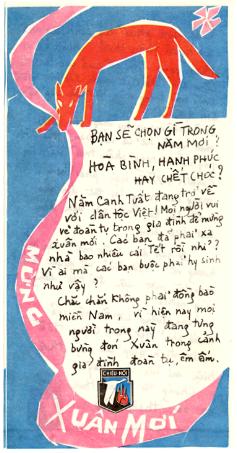 BẠN SẼ CHỌN GÌ TRONG
NĂM MỚI?
HOÀ BÌNH, HẠNH PHÚC
HAY CHẾT CHÓC?
Năm Canh Tuất đang trở về
với dân tộc Việt! Mọi người vui
vẻ đoàn tụ trong gia đình để mừng
xuân mới. Các bạn đã phải xa
nhà bao nhiêu cái Tết rồi nhỉ??
Vì ai mà các bạn buộc phải hy sinh
như vậy?
Chắc chắn không phải đồng bào
miền Nam, vì hiện nay mọi
người trong này đang tưng
bừng đón Xuân trong cảnh
gia đình đoàn tụ, êm ấm.
CHIÊU-HỒI
MỪNG
XUÂN MỚI